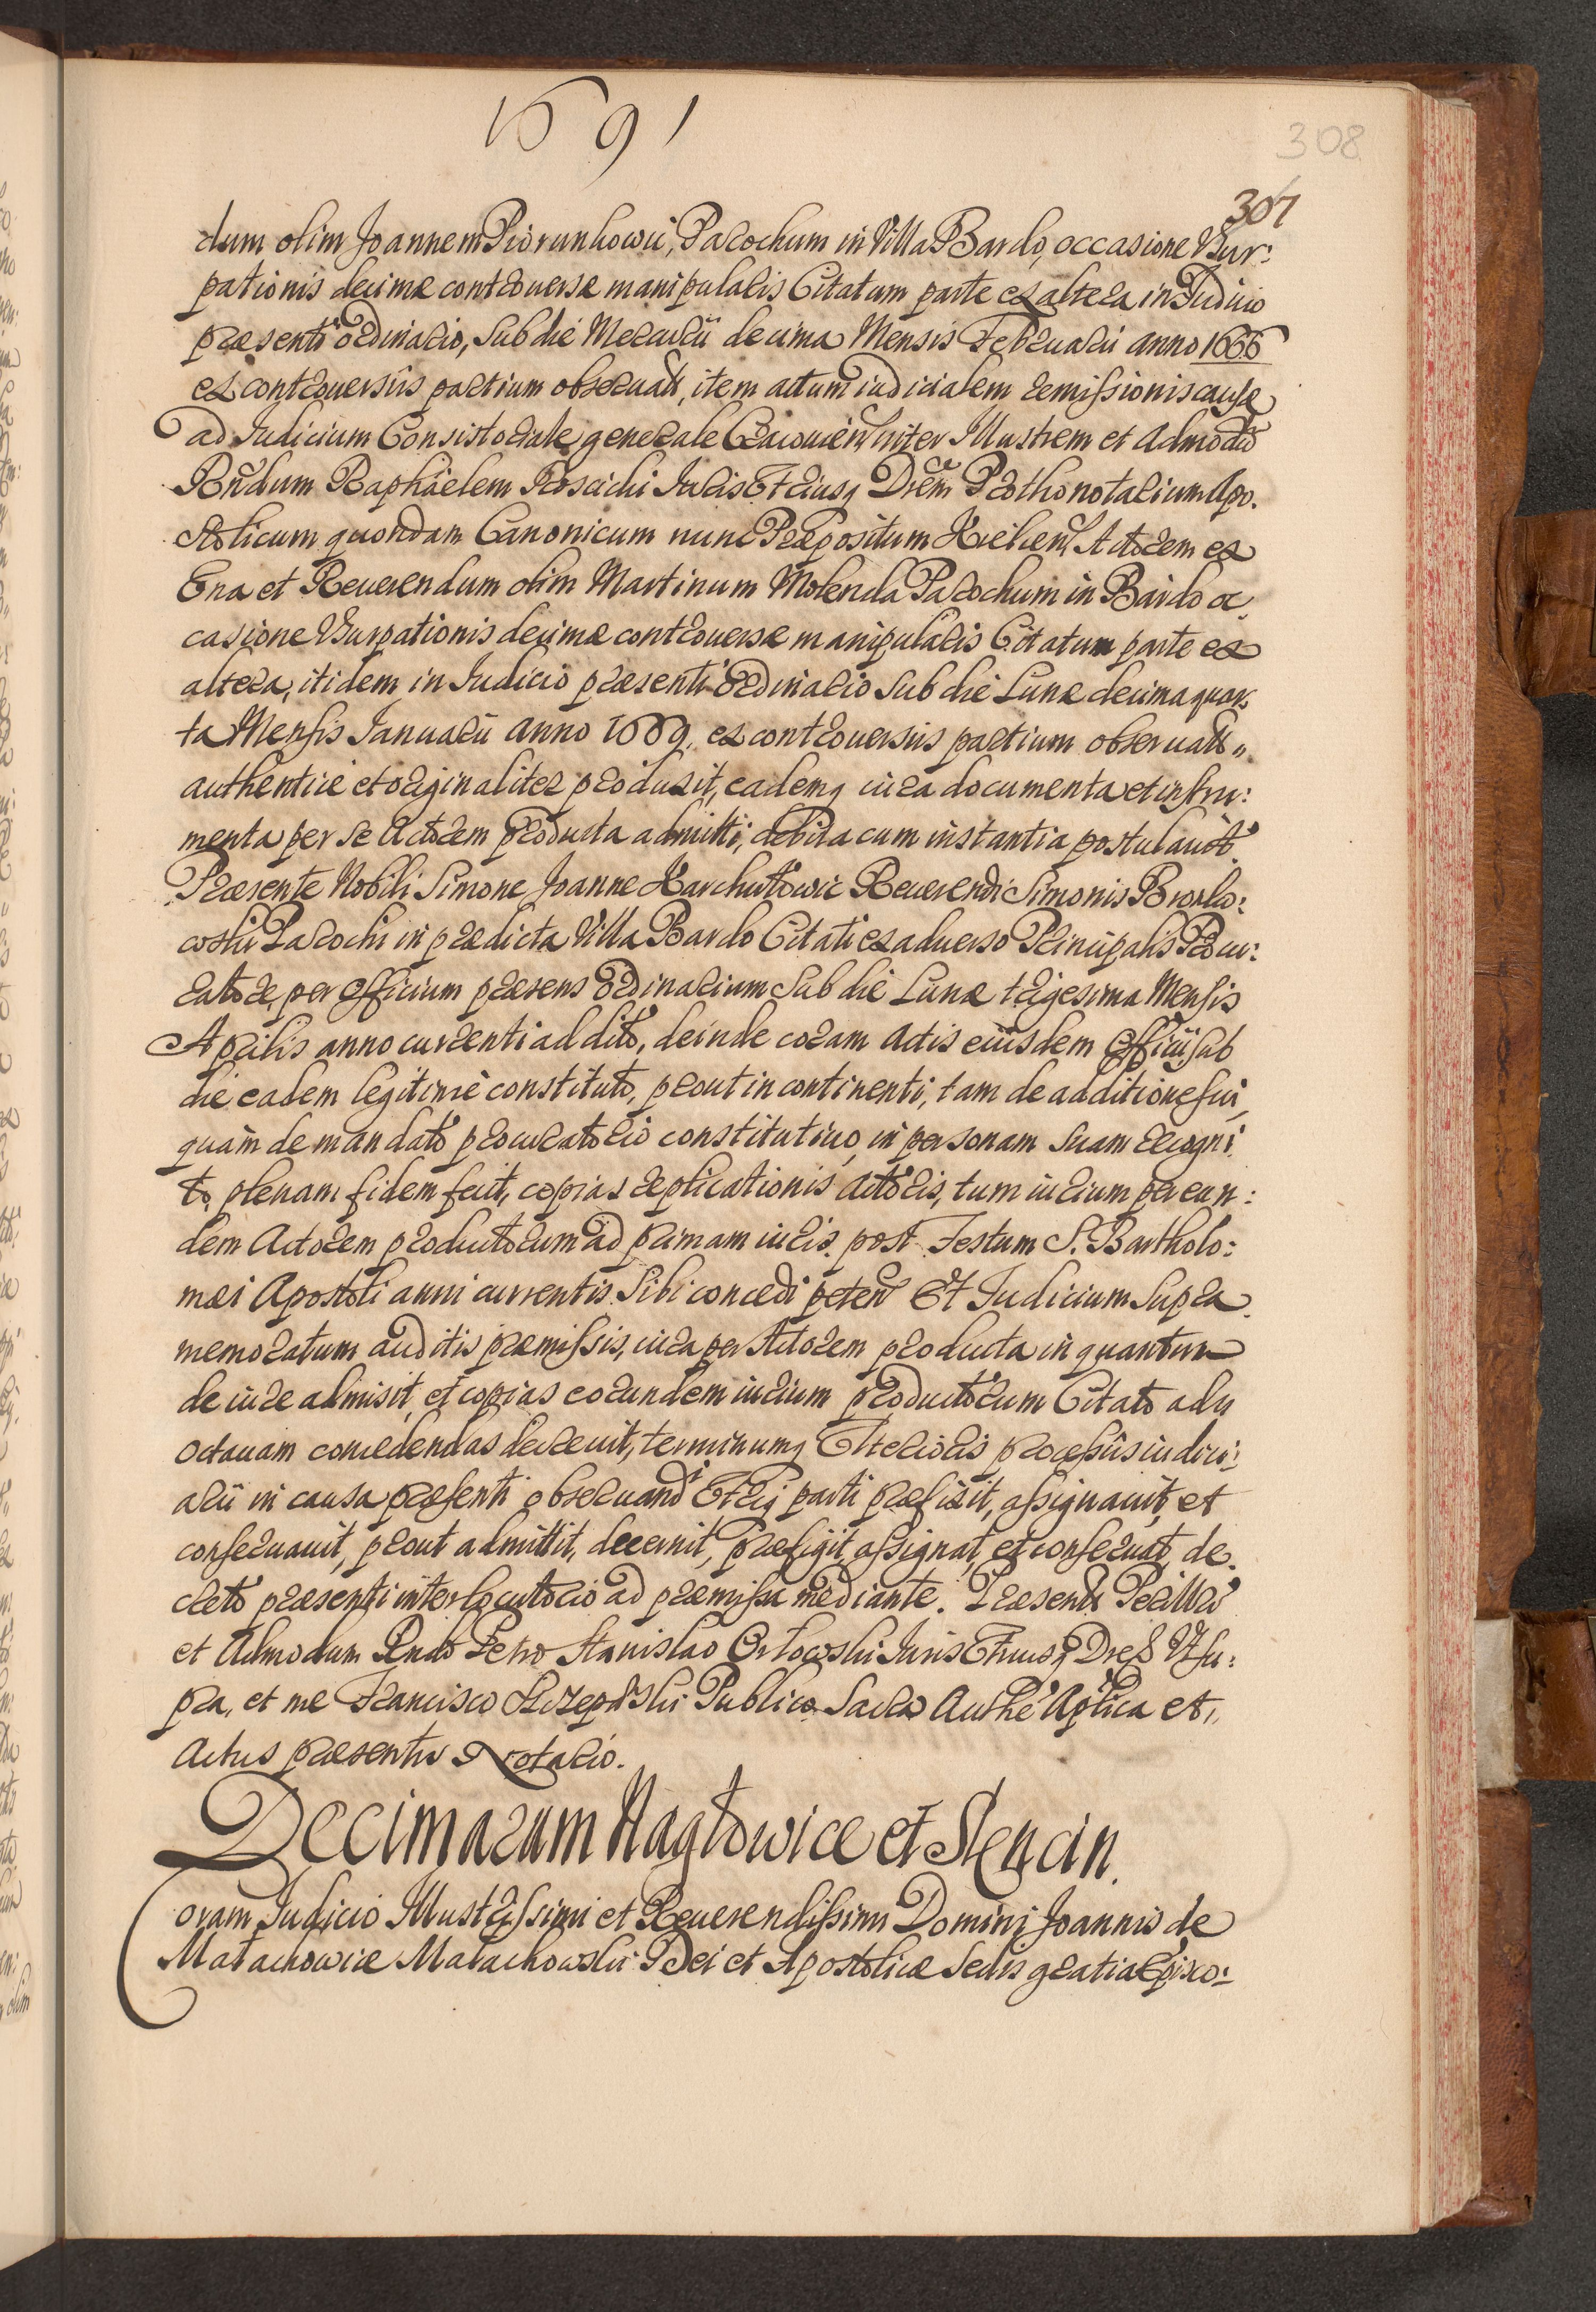 1691
308
307
dum olim Joannem Piorunkowic, Parochum in Villa Bardo, occasione Vsur:
pationis decimæ controuersæ manipularis Citatum parte ex altera in Judicio
præsenti ordinario, sub die Mercurii decima Mensis Februarii anno 1666
ex controuersiis partium obseruatt, item actum iudicialem remissionis causæ
ad Judicium Consistoriale generale Cracouien inter Illustrem et Admodũ
Rñdum Raphaelem Roscichi Juris Vtriusq Drem Prothonotarium Apo.
stolicum quondam Canonicum nunc Præpositum Kielcen Actorem ex
Vna et Reuerendum olim Martinum Molenda Parochum in Bardo oc.
casione Vsurpationis decimæ controuersæ manipularis Citatum parte ex
altera, itidem in Judicio præsenti ordinario sub die Lunæ decima quar
ta Mensis Januarii anno 1669. ex controuersiis partium obseruatt,,
authenticè et originaliter produxit, eademq iura documenta et instru:
menta per se Actorem producta admitti, debita cum instantia postulauit.
Præsente Nobili Simone Joanne Karchutowic Reuerendi Simonis Bworko:
coski Parochi in prædicta Villa Bardo Citati ex aduerso Principalis Procu:
ratore, per officium præsens ordinarium sub die Lunæ trigesima Mensis
Aprilis anno currenti addito, deinde coram Actis eiusdem Officii sub
die eadem legitimè constituto, prout in continenti, tam de additione sui,
quàm de mandato procuratorio constitutiuo, in personam suam recogni
to, plenam fidem fecit, copias replicationis Actoris, tum iurium per eun:
dem Actorem productorum ad primam iuris. post Festum S. Bartholo:
mæi Apostoli anni currentis sibi concedi peten Et Judicium supra
memoratum auditis præmissis, iura per Actorem producta in quantum
de iure admisit, et copias eorundem iurium productorum Citato ad
octauam concedendas decreuit, terminumq Vlterioris processus iudici:
arii in causa præsenti obseruandi Vtriq parti præfixit, assignauit, et
conseruauit, prout admittit, decernit, præfigit, assignat, et conseruat, de.
creto præsenti interlocutorio ad præmissa mediante. Præsente Perillri
et Admodum Rndo Petro Stanislao Orłowski Juris Vtriusq Dre Vt su:
pra, et me Francisco Skrzepinski Publico Sacra Authe Aplica et,,
Actus præsentis Notario.
Decimarum Nagłowice et Slęncin.
Coram Judicio Illustrissimi et Reuerendissimi Domini Joannis de
Małachowice Małachowski Dei et Apostolicæ Sedis gratia Episco: